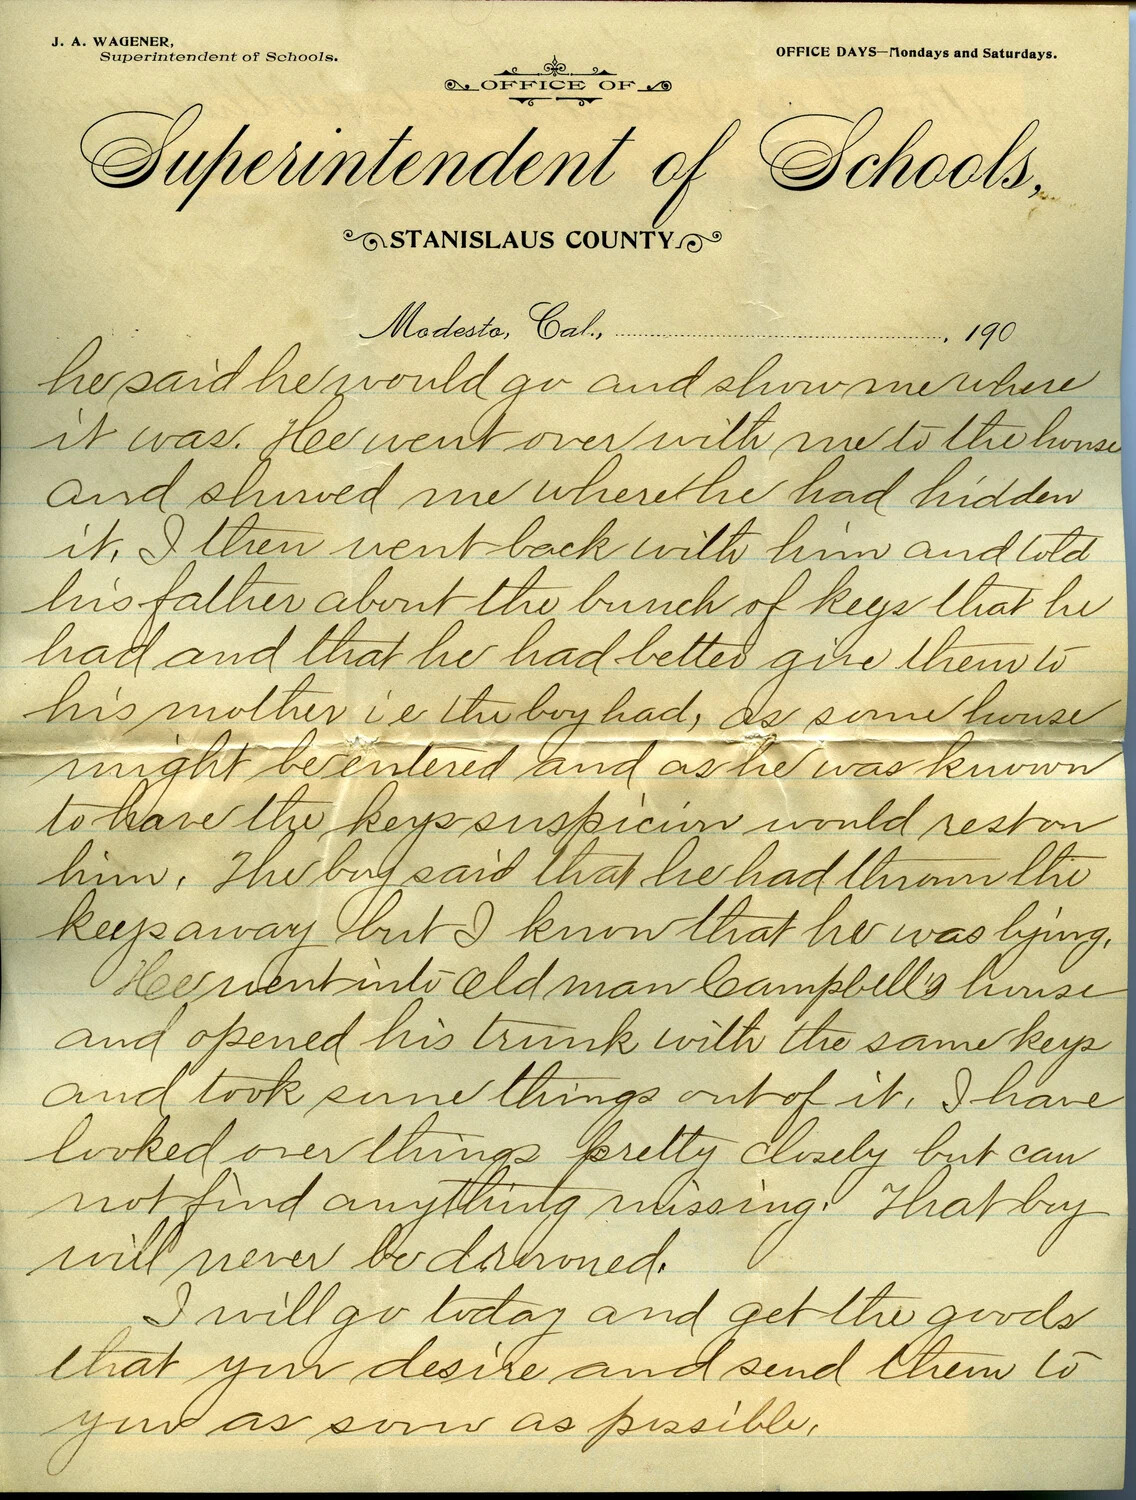 J. A. WAGENER,
Superintendent of Schools.
OFFICE DAYS—Mondays and Saturdays.
OFFICE OF
Superintendent of Schools,
STANISLAUS COUNTY
Modesto, Cal., ........................................, 190
he said he would go and show me where
it was. He went over with me to the house
and showed me where he had hidden
it. I then went back with him and told
his father about the bunch of keys that he
had and that he had better give them to
his mother i e the boy had, as some house
might be entered and as he was known
to have the keys suspicion would rest on
him. The boy said that he had thrown the
keys away but I know that he was lying.
He went into Old man Campbell's house
and opened his trunk with the same keys
and took some things out of it. I have
looked over things pretty closely but can
not find anything missing. That boy
will never be drowned.
I will go today and get the goods
that you desire and send them to
you as soon as possible.